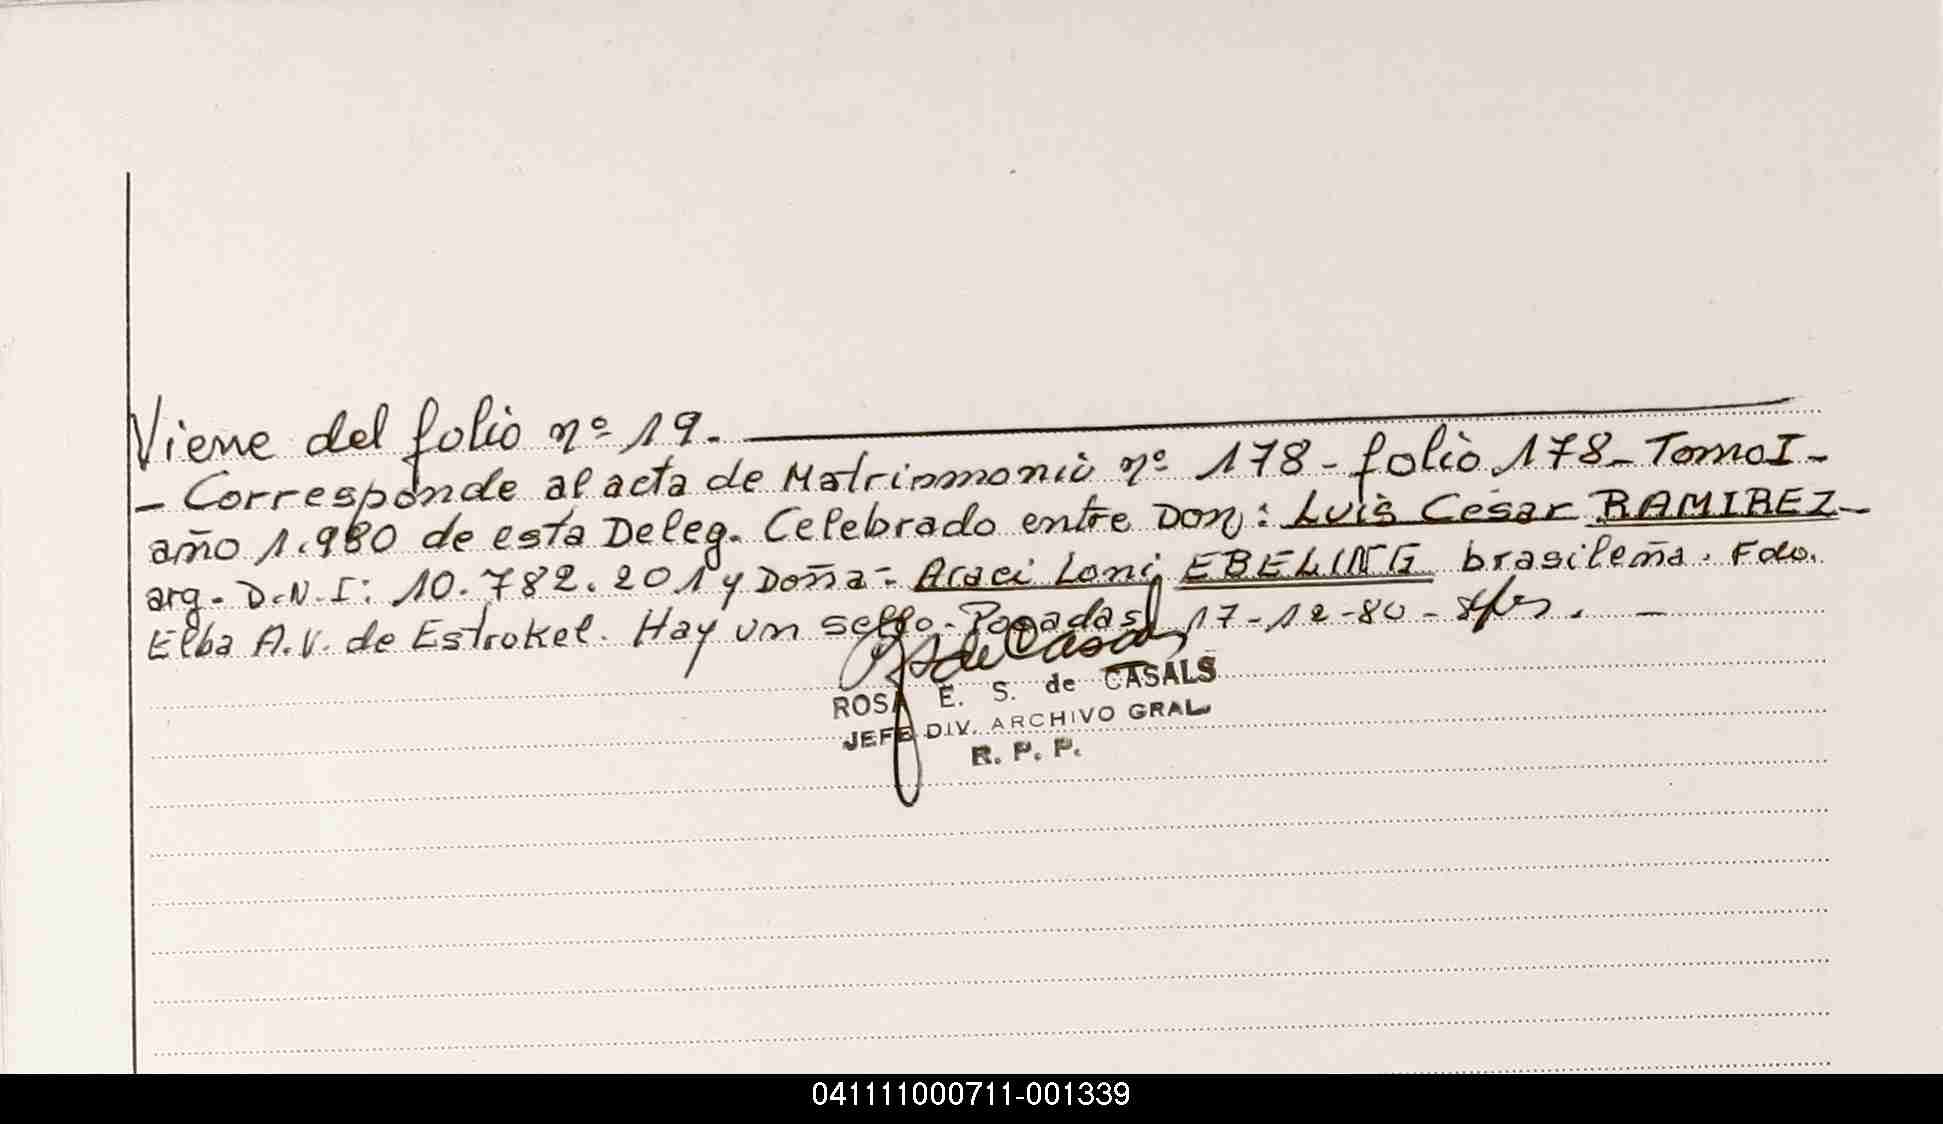 Viene del folio nº 19.
- Corresponde al acta de Matrimonio nº 178 - folio 178 - Tomo I -
año 1.980 de esta Deleg. Celebrado entre Don: Luis César RAMIREZ -
arg. D.N.I: 10.782.201 y Doña: Araci Loni EBELING brasileña. Fdo.
Elba A.V. de Estrokel. Hay un sello. Posadas, 17-12-80 -
ROSA E. S. de CASALS
JEFE DIV. ARCHIVO GRAL
R. P. P.
041111000711-001339